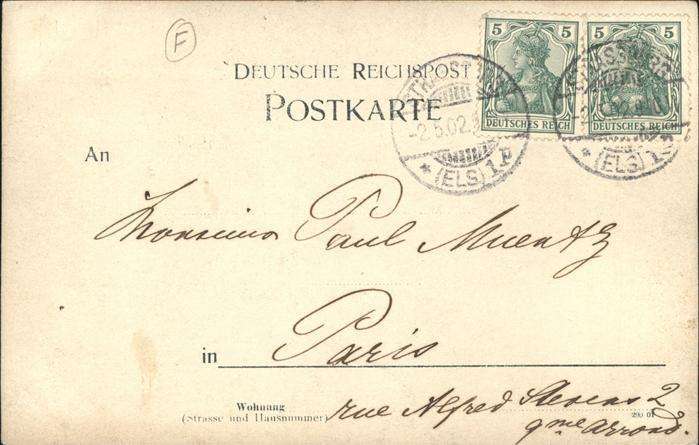 F
5 5 5 5
DEUTSCHES REICH DEUTSCHES REICH
STRASSBURG
-2.5.02.
* (ELS) 1 F
STRASSBURG
(ELS) 1
DEUTSCHE REICHSPOST
POSTKARTE
An
Monsieur Paul Muentz
in Paris
Wohnung
(Strasse und Hausnummer)
rue Alfred Stevens 2
290 01
9me arrond.